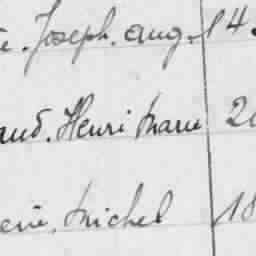 Joseph. aug. 14
Henri Marie 20
Michel 18